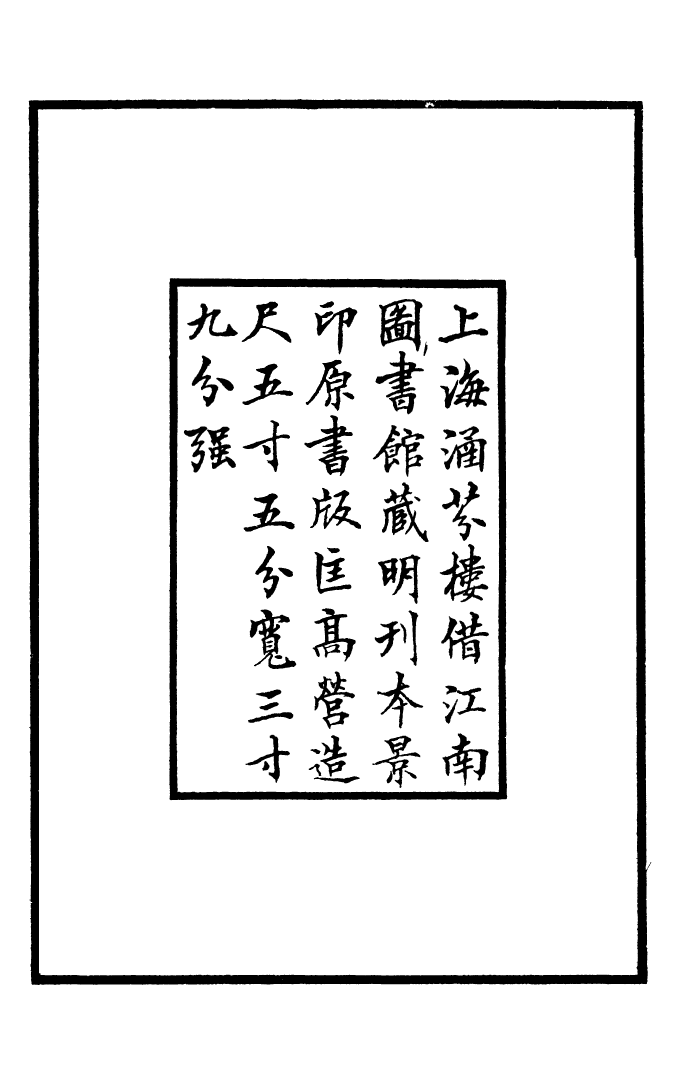 上海涵芬樓借江南
圖書館蔵明刊本景
印原書版匡髙營造
尺五寸五分寬三寸
九分强